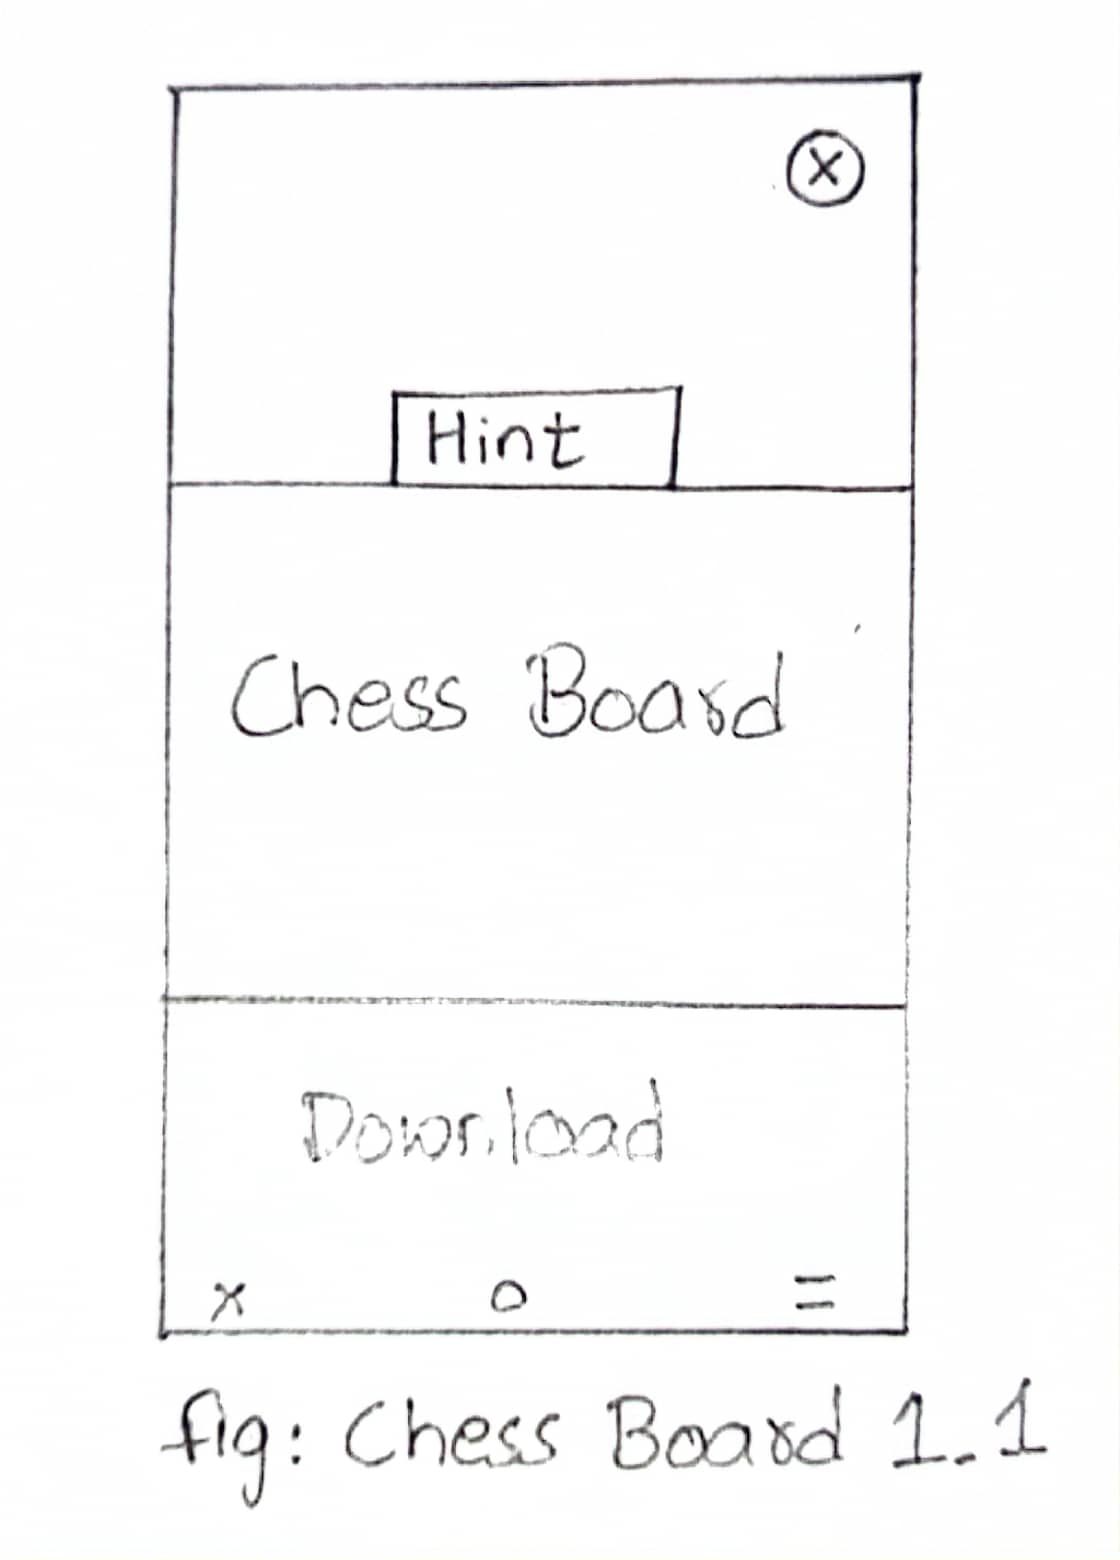 X
Hint
Chess Board
Download
x o =
fig: Chess Board 1.1